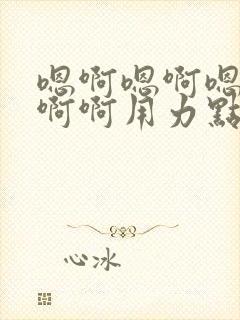 嗯啊嗯啊嗯
啊啊用力點
心冰